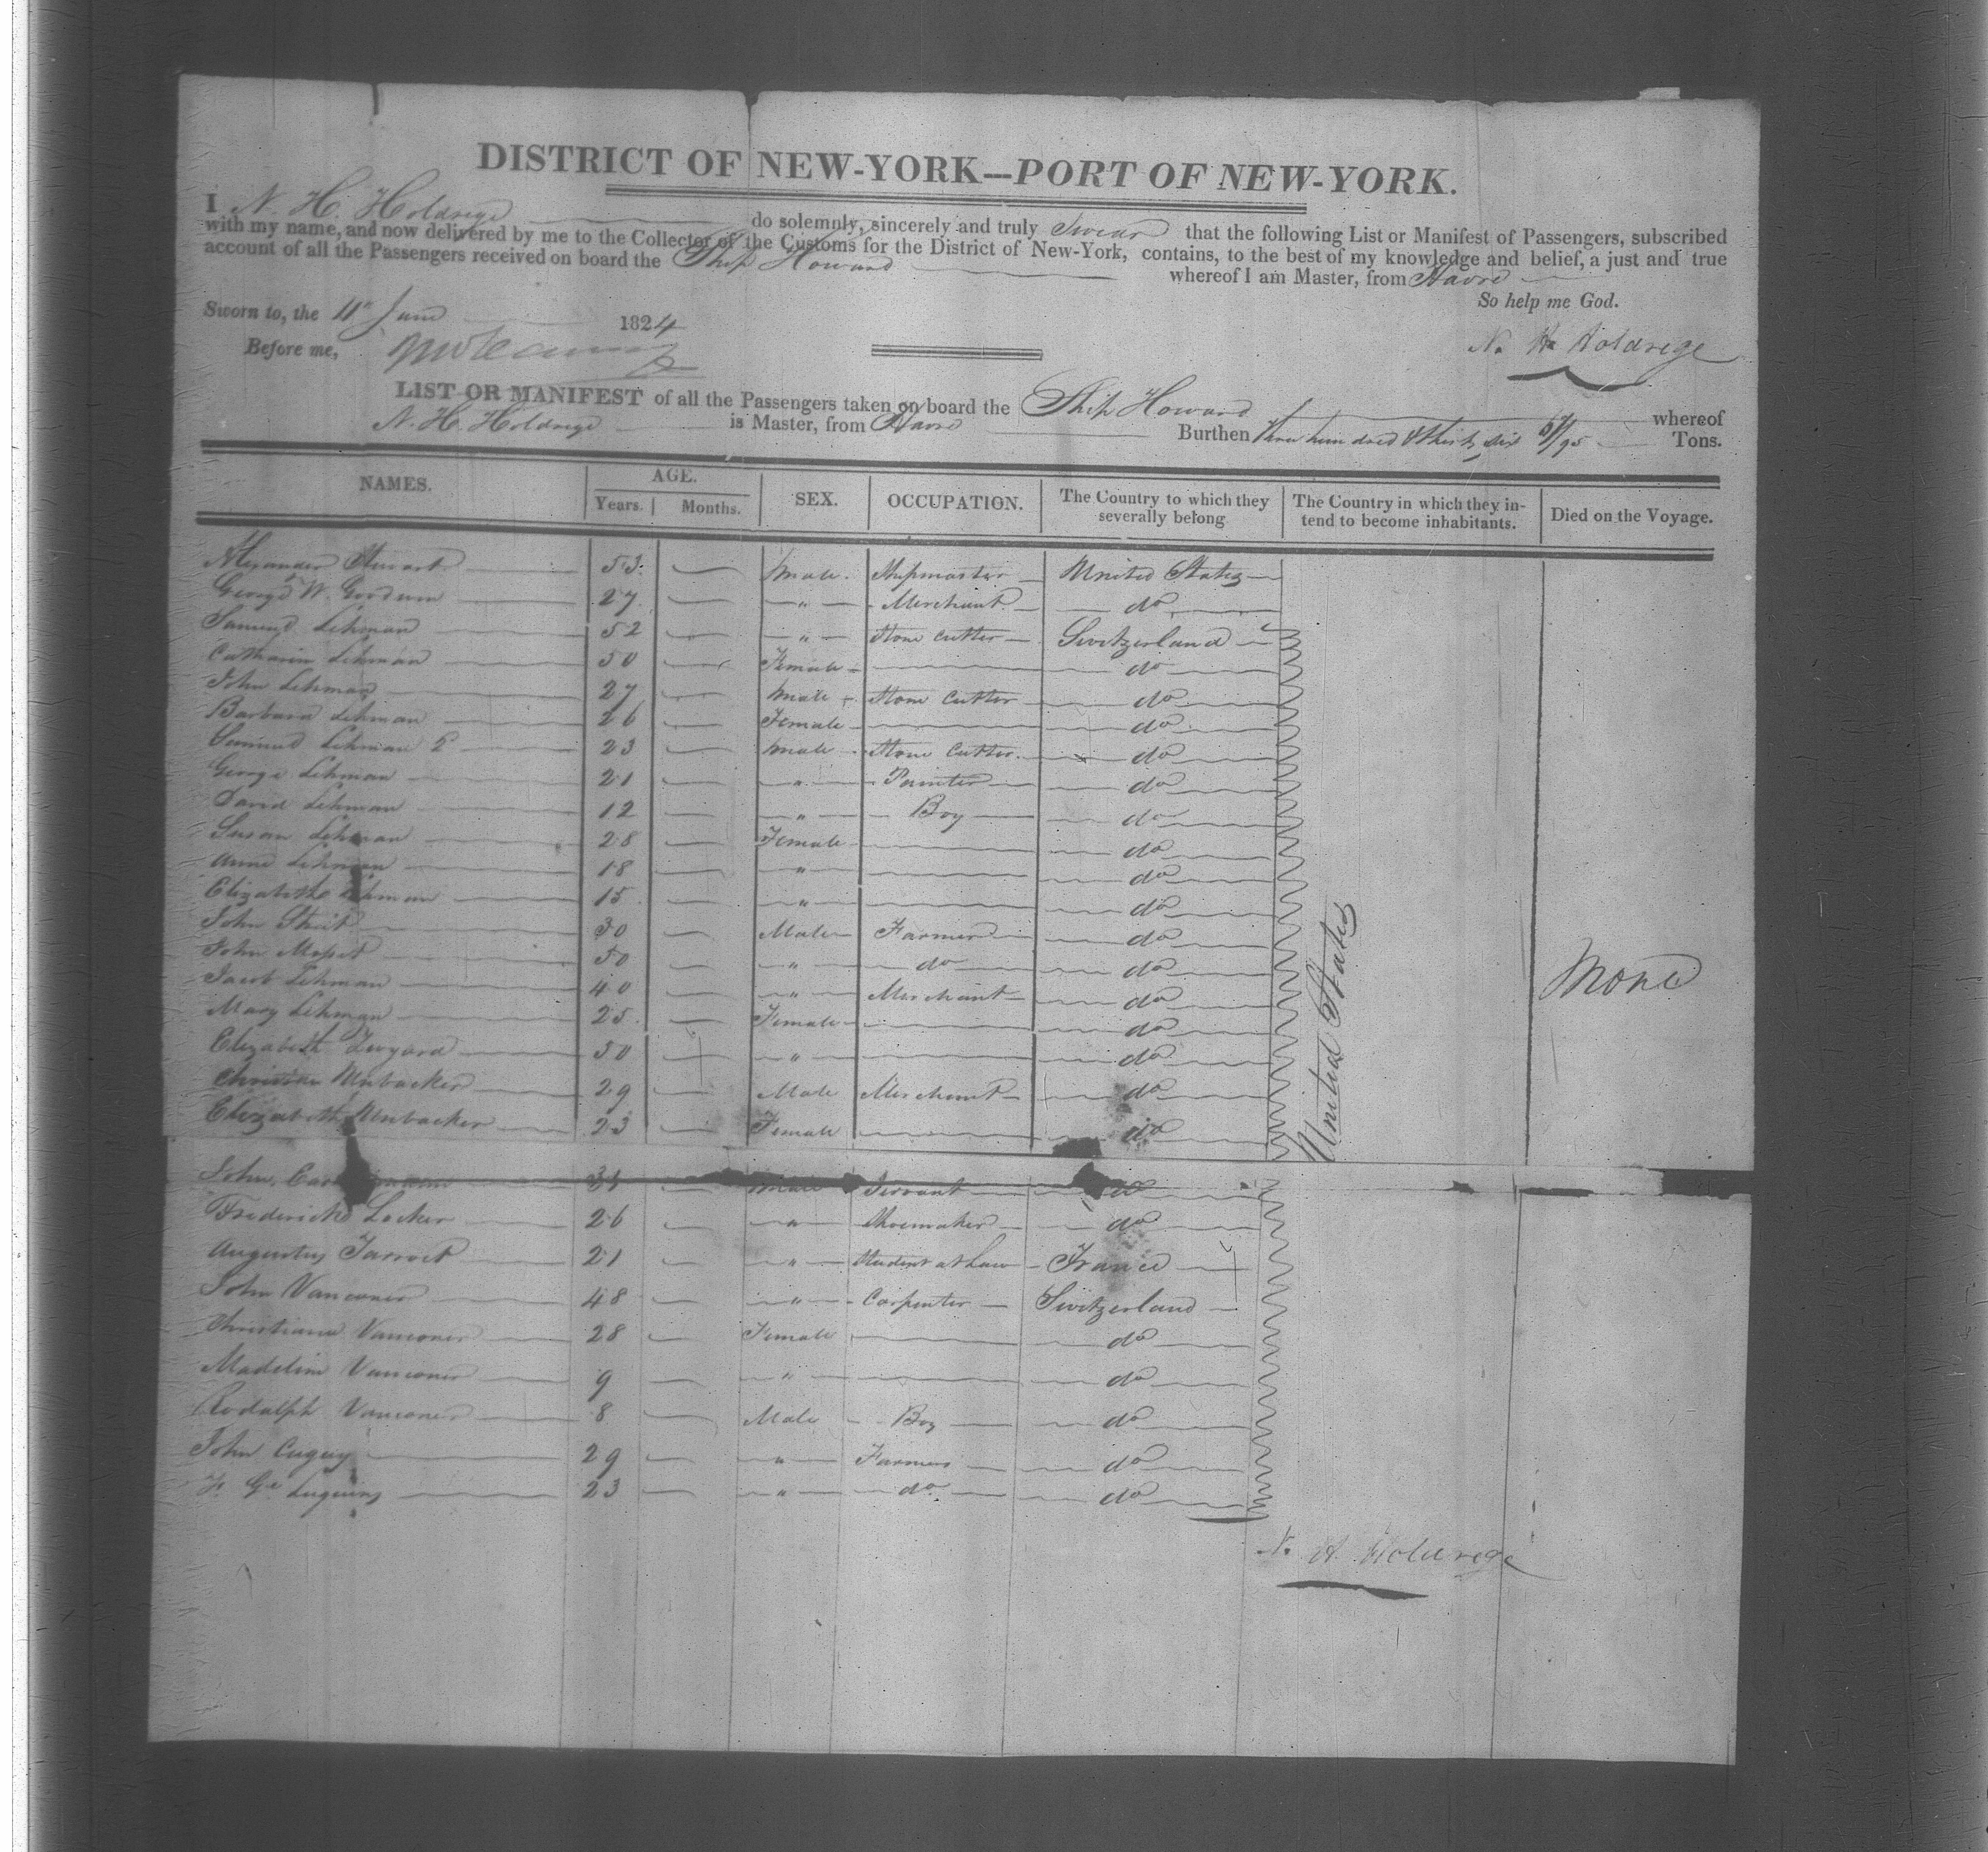 DISTRICT OF NEW-YORK—PORT OF NEW-YORK.
I N. H. Holdrege do solemnly, sincerely and truly Swear that the following List or Manifest of Passengers, subscribed
with my name, and now delivered by me to the Collector of the Customs for the District of New-York, contains, to the best of my knowledge and belief, a just and true
account of all the Passengers received on board the Ship Howard whereof I am Master, from Havre
So help me God.
Sworn to, the 11th June 1824
Before me,
N. H. Holdrege
LIST OR MANIFEST of all the Passengers taken on board the Ship Howard whereof
N. H. Holdrege is Master, from Havre Burthen Three hundred & thirty six /95 Tons.
NAMES. AGE. Years. Months. SEX. OCCUPATION. The Country to which they severally belong The Country in which they intend to become inhabitants. Died on the Voyage.
Alexander Stewart 53 Male. Shipmaster United States
George W. Goodwin 27 " Merchant do
Samuel Lehman 52 " Stone Cutter Switzerland
Catharine Lehman 50 Female do
John Lehman 27 Male Stone Cutter do
Barbara Lehman 26 Female do
Samuel Lehman 2d 23 Male Stone Cutter do
George Lehman 21 " Painter do
David Lehman 12 " Boy do
Susan Lehman 28 Female do
Anna Lehman 18 " do
Elizabeth Lehman 15 " do
John 30 Male Farmer do
John 50 " do do
Jacob Lehman 40 " Merchant do
Mary Lehman 25 Female do
Elizabeth 50 " do
Christian 29 Male Merchant do
Elizabeth 23 Female do
United States
None
John Male Servant do
Frederick Locker 26 " Shoemaker do
Augustus 21 " Student at Law France
John Vanconer 48 " Carpenter Switzerland
Christiana Vanconer 28 Female do
Madeline Vanconer 9 " do
Rodalph Vanconer 8 Male Boy do
John 29 " Farmer do
23 " do do
N. H. Holdrege